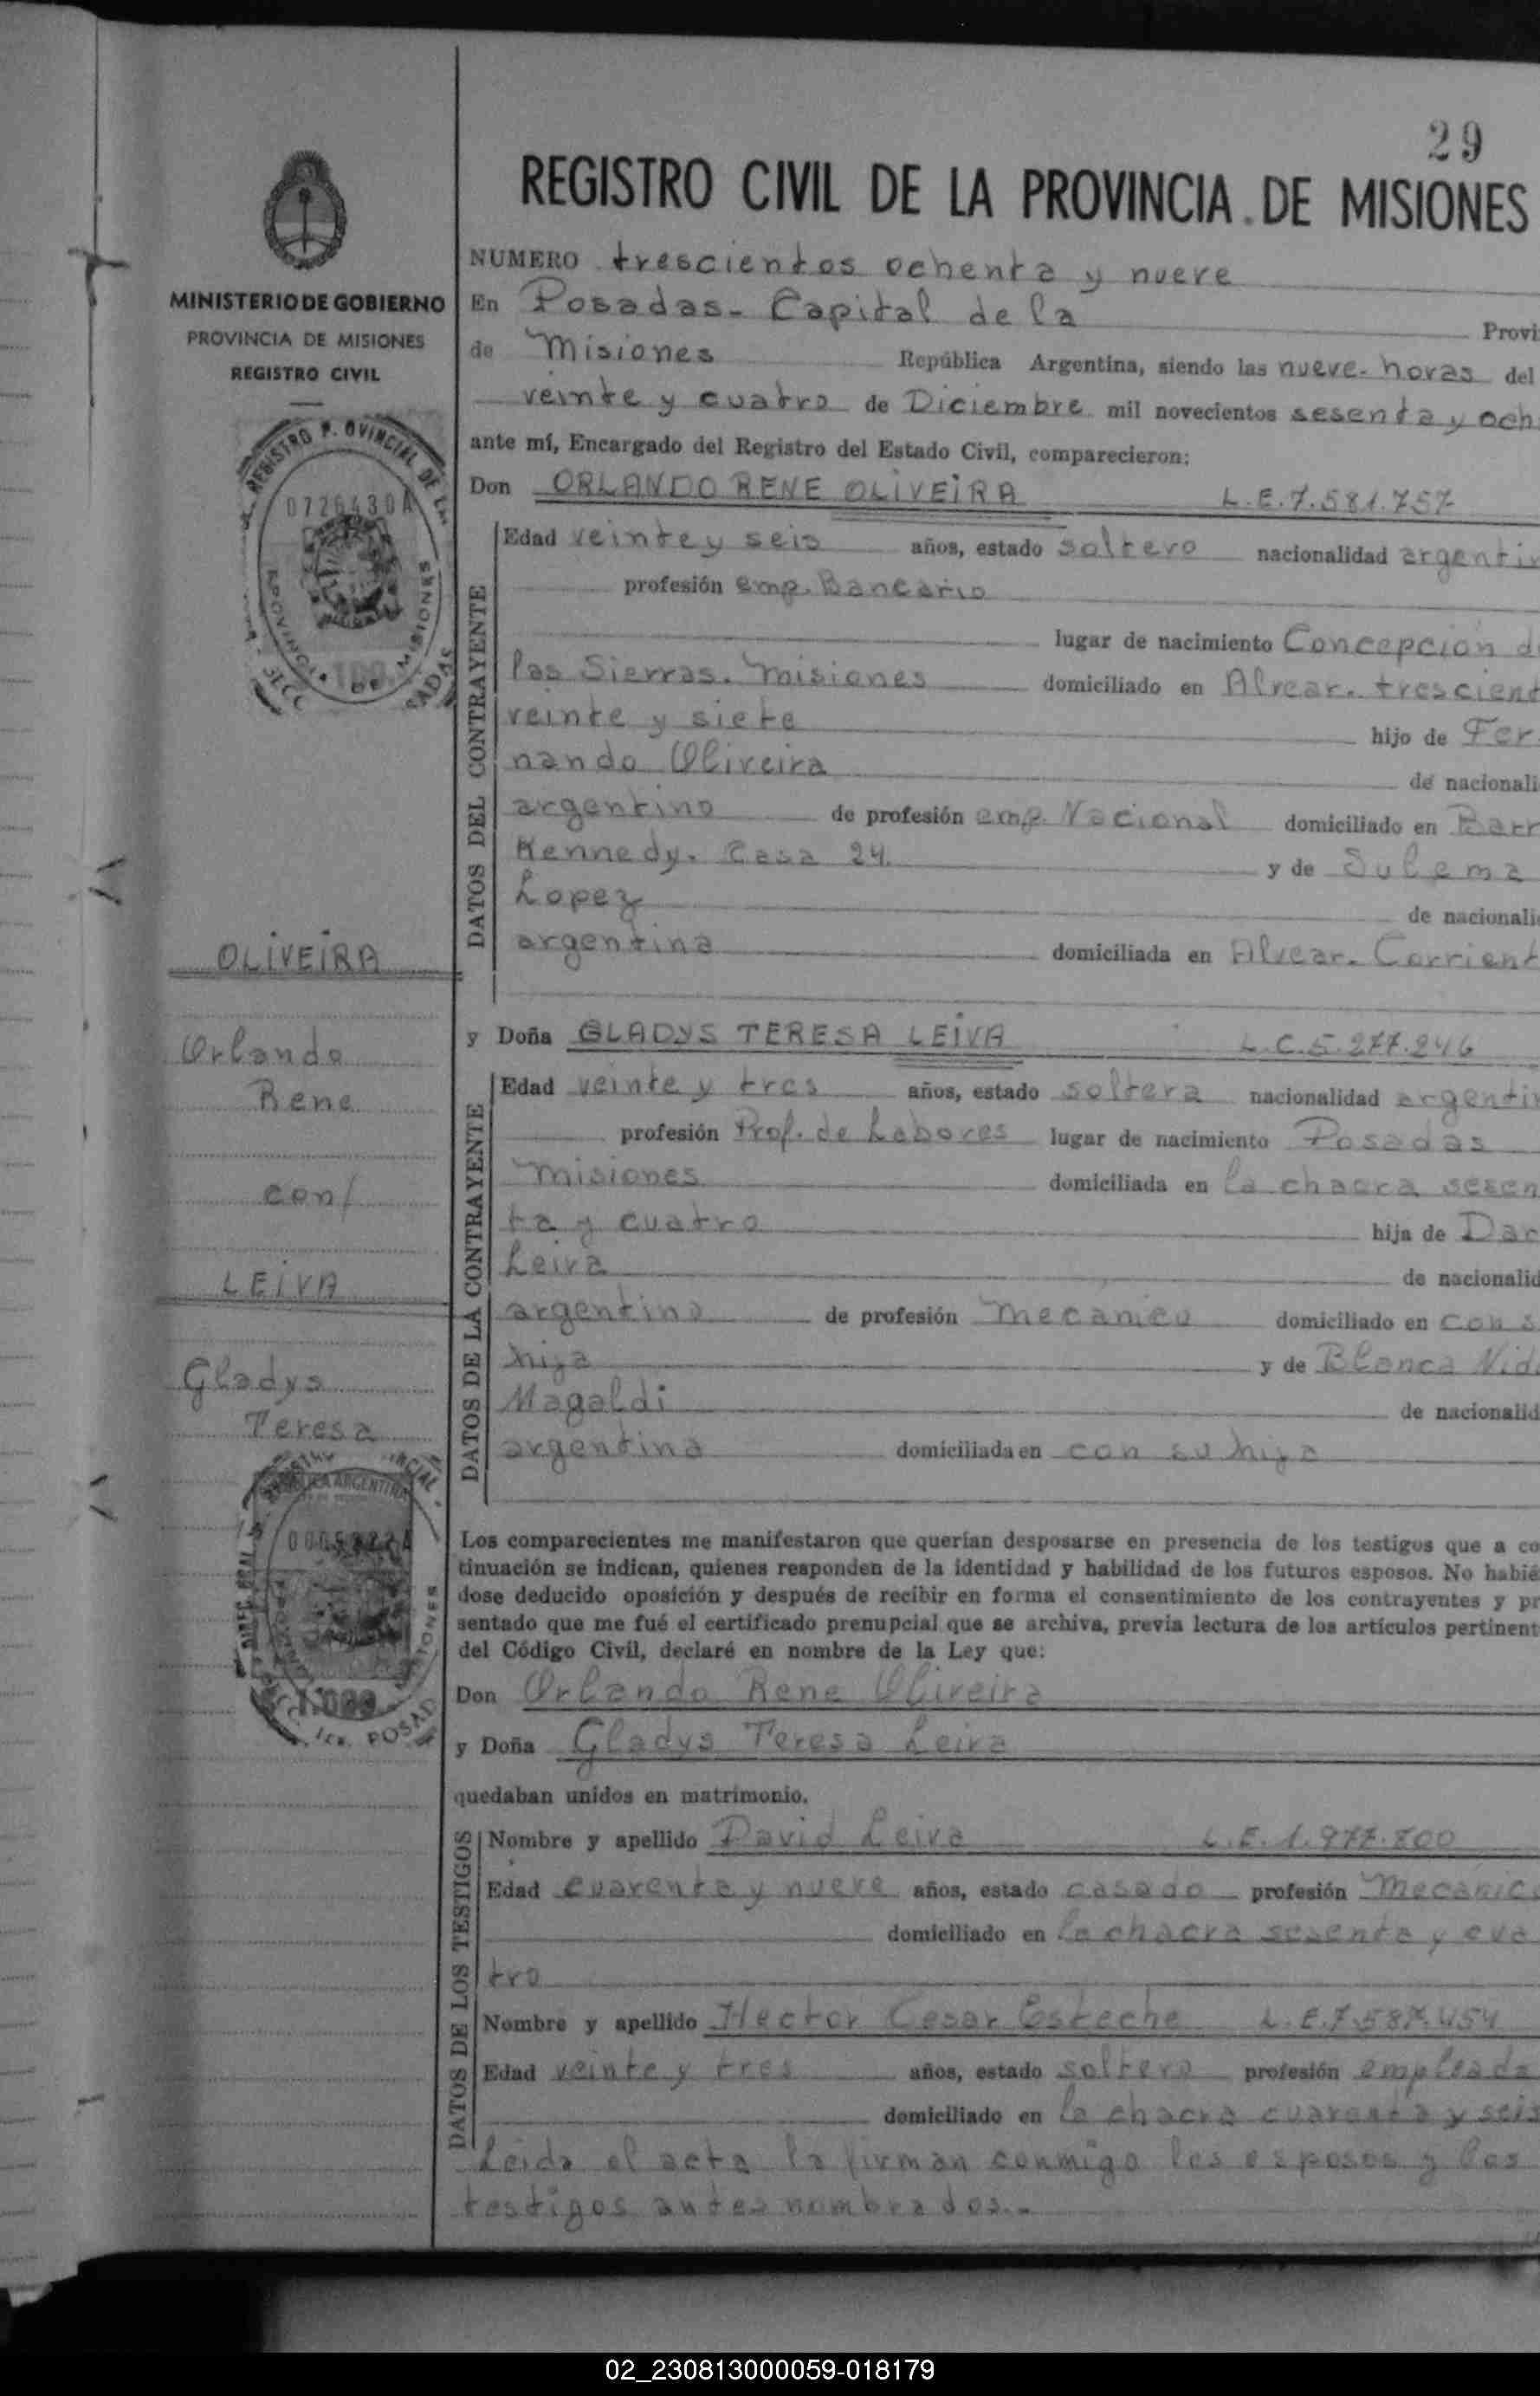 29
REGISTRO CIVIL DE LA PROVINCIA DE MISIONES
MINISTERIO DE GOBIERNO
PROVINCIA DE MISIONES
REGISTRO CIVIL
REGISTRO P. OVINCIAL DE L
0726430A
MISIONES
100
OLIVEIRA
Orlando
Rene
con/
LEIVA
Gladys
Teresa
1.000
1ra. POSAD
NUMERO trescientos ochenta y nueve
En Posadas- Capital de la Provi
de Misiones República Argentina, siendo las nueve- horas del
veinte y cuatro de Diciembre mil novecientos sesenta y och
ante mí, Encargado del Registro del Estado Civil, comparecieron:
Don ORLANDO RENE OLIVEIRA L.E.7.581.757
DATOS DEL CONTRAYENTE
Edad veinte y seis años, estado soltero nacionalidad argentin
profesión emp. Bancario
lugar de nacimiento Concepción d
las Sierras. Misiones domiciliado en Alvear. trescient
veinte y siete hijo de Fer
nando Oliveira de nacionali
argentino de profesión emp. Nacional domiciliado en Barr
Kennedy. Casa 24. y de Sulema
Lopez de nacionali
argentina domiciliada en Alvear. Corrient
y Doña GLADYS TERESA LEIVA L.C.5.277.246
DATOS DE LA CONTRAYENTE
Edad veinte y tres años, estado soltera nacionalidad argentin
profesión Prof. de Labores lugar de nacimiento Posadas
Misiones domiciliada en la chacra sesen
ta y cuatro hija de Da
Leiva de nacionalid
argentino de profesión mecanico domiciliado en con s
hija y de Blanca Nid
Magaldi de nacionalid
argentina domiciliada en con su hija
Los comparecientes me manifestaron que querían desposarse en presencia de los testigos que a co
tinuación se indican, quienes responden de la identidad y habilidad de los futuros esposos. No habié
dose deducido oposición y después de recibir en forma el consentimiento de los contrayentes y pr
sentado que me fué el certificado prenupcial que se archiva, previa lectura de los artículos pertinent
del Código Civil, declaré en nombre de la Ley que:
Don Orlando Rene Oliveira
y Doña Gladys Teresa Leiva
quedaban unidos en matrimonio.
DATOS DE LOS TESTIGOS
Nombre y apellido David Leiva L.E. 1.977.800
Edad cuarenta y nueve años, estado casado profesión Mecánic
domiciliado en la chacra sesenta y cua
tro
Nombre y apellido Hector Cesar Esteche L.E.7.587.454
Edad veinte y tres años, estado soltero profesión empleado
domiciliado en la chacra cuarenta y seis
Leida el acta la firman conmigo los esposos y los
testigos antes nombrados.-
02_230813000059-018179